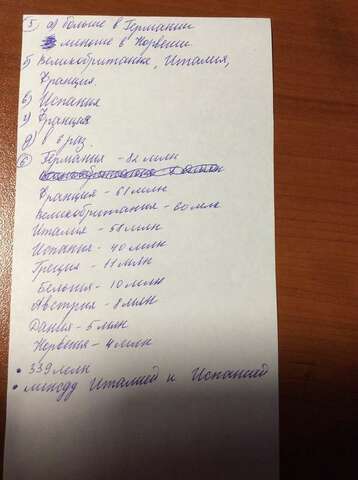 5) а) больше в Германии
меньше в Норвегии
б) Великобритания, Италия,
Франция.
в) Испания
г) Франция
д) в 8 раз.
6) Германия - 82 млн
Франция - 61 млн
Великобритания - 60 млн
Италия - 58 млн
Испания - 40 млн
Греция - 11 млн
Бельгия - 10 млн
Австрия - 8 млн
Дания - 5 млн
Норвегия - 4 млн
• 339 млн
• между Италией и Испанией